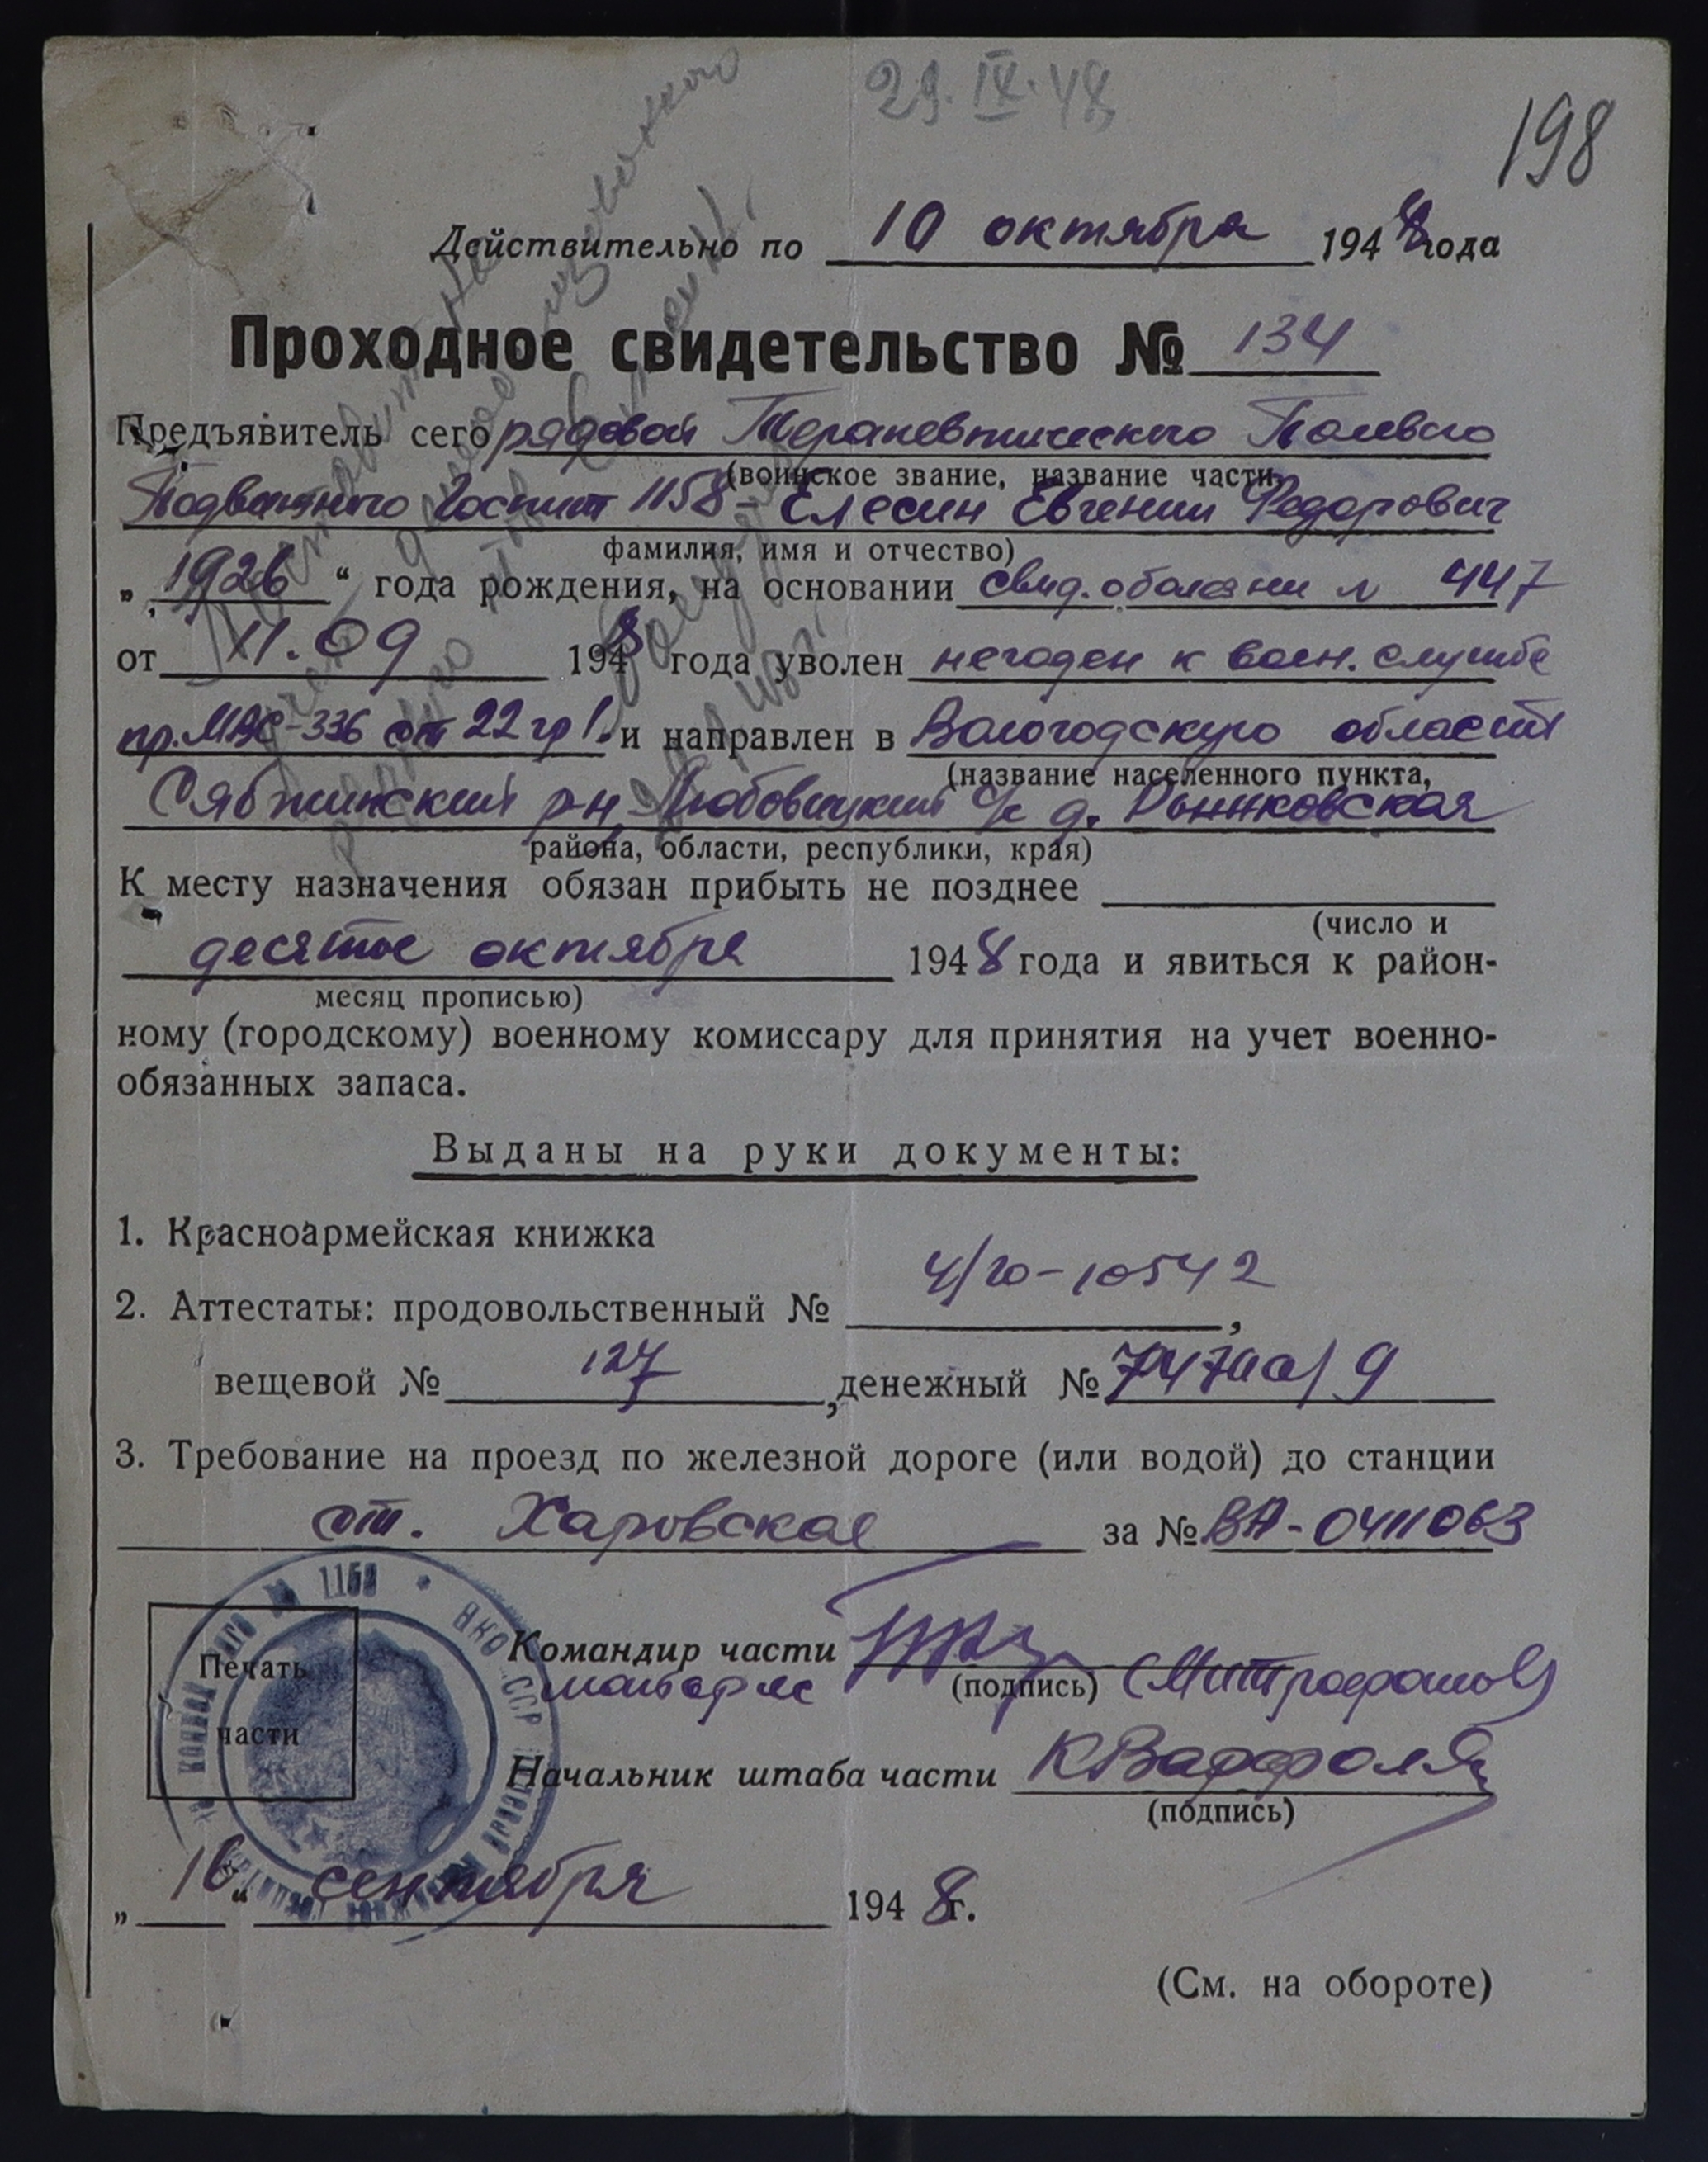 29.IX.48
198
Действительно по 10 октября 1948 года
Проходное свидетельство № 134
Предъявитель сего рядовой Терапевтического Полевого
(воинское звание, название части,
Подвижного Госпит 1158 – Елесин Евгении Федорович
фамилия, имя и отчество)
„1926“ года рождения, на основании свид. о болезни № 447
от 11.09 1948 года уволен негоден к воен. службе
пр. МВС-336 ст 22 гр I. и направлен в Вологодскую область
(название населенного пункта,
Сямженский р-н, с/с д. Рыпковская
района, области, республики, края)
К месту назначения обязан прибыть не позднее
(число и
десятое октября 1948 года и явиться к район-
месяц прописью)
ному (городскому) военному комиссару для принятия на учет военно-
обязанных запаса.
Выданы на руки документы:
1. Красноармейская книжка
2. Аттестаты: продовольственный № 4/го-10542,
вещевой № 127, денежный № 747 9
3. Требование на проезд по железной дороге (или водой) до станции
ст. Харовская за № ВА-0411063
1158 * СССР
Печать
части
Командир части
майор мс (подпись) (Митрофанов)
Начальник штаба части
(подпись)
„16“ сентября 1948 г.
(См. на обороте)